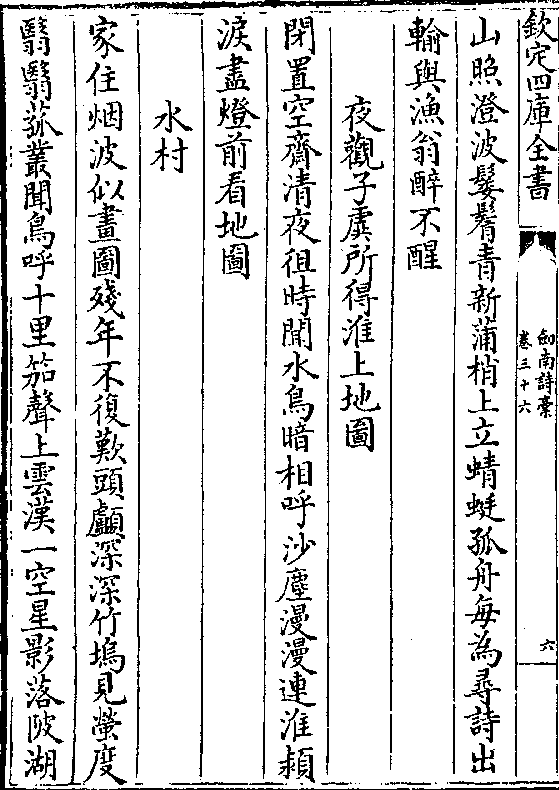 欽定四庫全書
劍南詩稾
卷三十六
六
山照澄波鬟鬌青新蒲梢上立蜻蜓孤舟每為尋詩出
輸與漁翁醉不醒
夜觀子虡所得淮上地圖
閉置空齋清夜徂時聞水鳥暗相呼沙塵漫漫連淮潁
淚盡燈前看地圖
水村
家住烟波似畫圖殘年不復歎頭顱深深竹塢見螢度
翳翳菰叢聞鳥呼十里笳聲上雲漢一空星影落陂湖